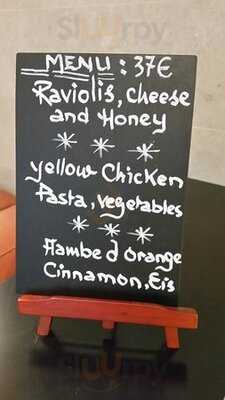 MENU : 37€
Raviolis, Cheese
and Honey
yellow Chicken
Pasta, vegetables
Flambe d orange
Cinnamon, Eis
Sluurpy